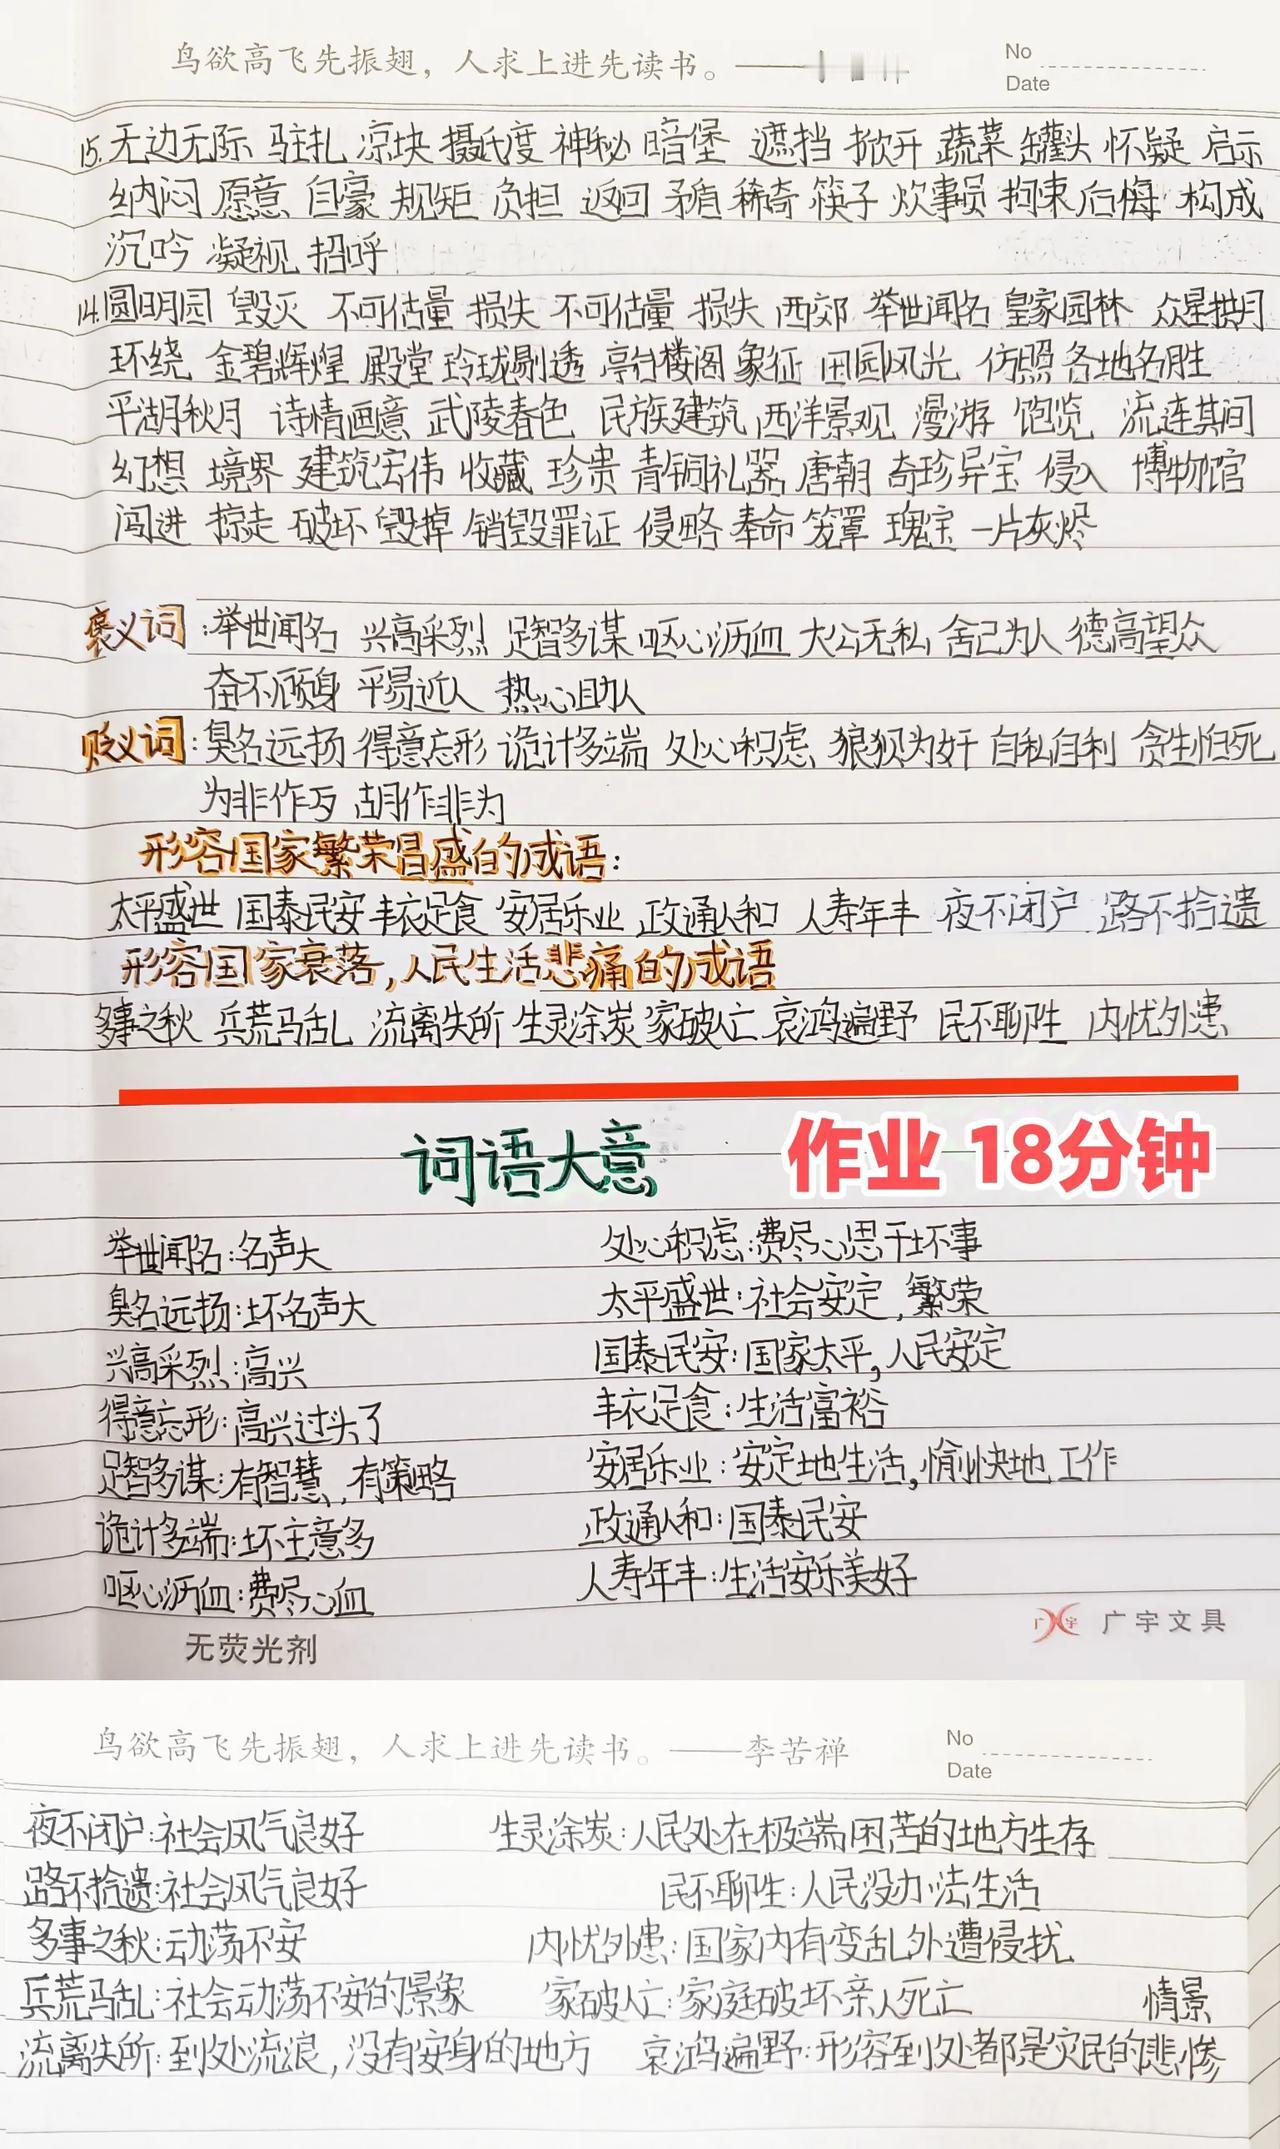 鸟欲高飞先振翅，人求上进先读书。——
No
Date
15.无边无际 驻扎 凉块 摄氏度 神秘 暗堡 遮挡 掀开 蔬菜 罐头 怀疑 启示
纳闷 愿意 自豪 规矩 负担 返回 矛盾 稀奇 筷子 炊事员 拘束 后悔 构成
沉吟 凝视 招呼
14.圆明园 毁灭 不可估量 损失 不可估量 损失 西郊 举世闻名 皇家园林 众星拱月
环绕 金碧辉煌 殿堂 玲珑剔透 亭台楼阁 象征 田园风光 仿照 各地名胜
平湖秋月 诗情画意 武陵春色 民族建筑 西洋景观 漫游 饱览 流连其间
幻想 境界 建筑宏伟 收藏 珍贵 青铜礼器 唐朝 奇珍异宝 侵入 博物馆
闯进 掠走 破坏 毁掉 销毁罪证 侵略 奉命 笼罩 瑰宝 一片灰烬
褒义词:举世闻名 兴高采烈 足智多谋 呕心沥血 大公无私 舍己为人 德高望众
奋不顾身 平易近人 热心助人
贬义词:臭名远扬 得意忘形 诡计多端 处心积虑 狼狈为奸 自私自利 贪生怕死
为非作歹 胡作非为
形容国家繁荣昌盛的成语:
太平盛世 国泰民安 丰衣足食 安居乐业 政通人和 人寿年丰 夜不闭户 路不拾遗
形容国家衰落,人民生活悲痛的成语
多事之秋 兵荒马乱 流离失所 生灵涂炭 家破人亡 哀鸿遍野 民不聊生 内忧外患
词语大意 作业 18分钟
举世闻名:名声大 处心积虑:费尽心思干坏事
臭名远扬:坏名声大 太平盛世:社会安定,繁荣
兴高采烈:高兴 国泰民安:国家太平,人民安定
得意忘形:高兴过头了 丰衣足食:生活富裕
足智多谋:有智慧,有策略 安居乐业:安定地生活,愉快地工作
诡计多端:坏主意多 政通人和:国泰民安
呕心沥血:费尽心血 人寿年丰:生活安乐美好
无荧光剂 广宇文具
鸟欲高飞先振翅，人求上进先读书。——李苦禅
No
Date
夜不闭户:社会风气良好 生灵涂炭:人民处在极端困苦的地方生存
路不拾遗:社会风气良好 民不聊生:人民没办法生活
多事之秋:动荡不安 内忧外患:国家内有变乱外遭侵扰
兵荒马乱:社会动荡不安的景象 家破人亡:家庭破坏亲人死亡 情景
流离失所:到处流浪,没有安身的地方 哀鸿遍野:形容到处都是灾民的悲惨